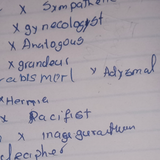 x Sympathe
x gynecologyst
x Analogous
x grandeur
cabismerl x Adysmal
x Hermia
x Pacifist
x inaguguratuum
decipher